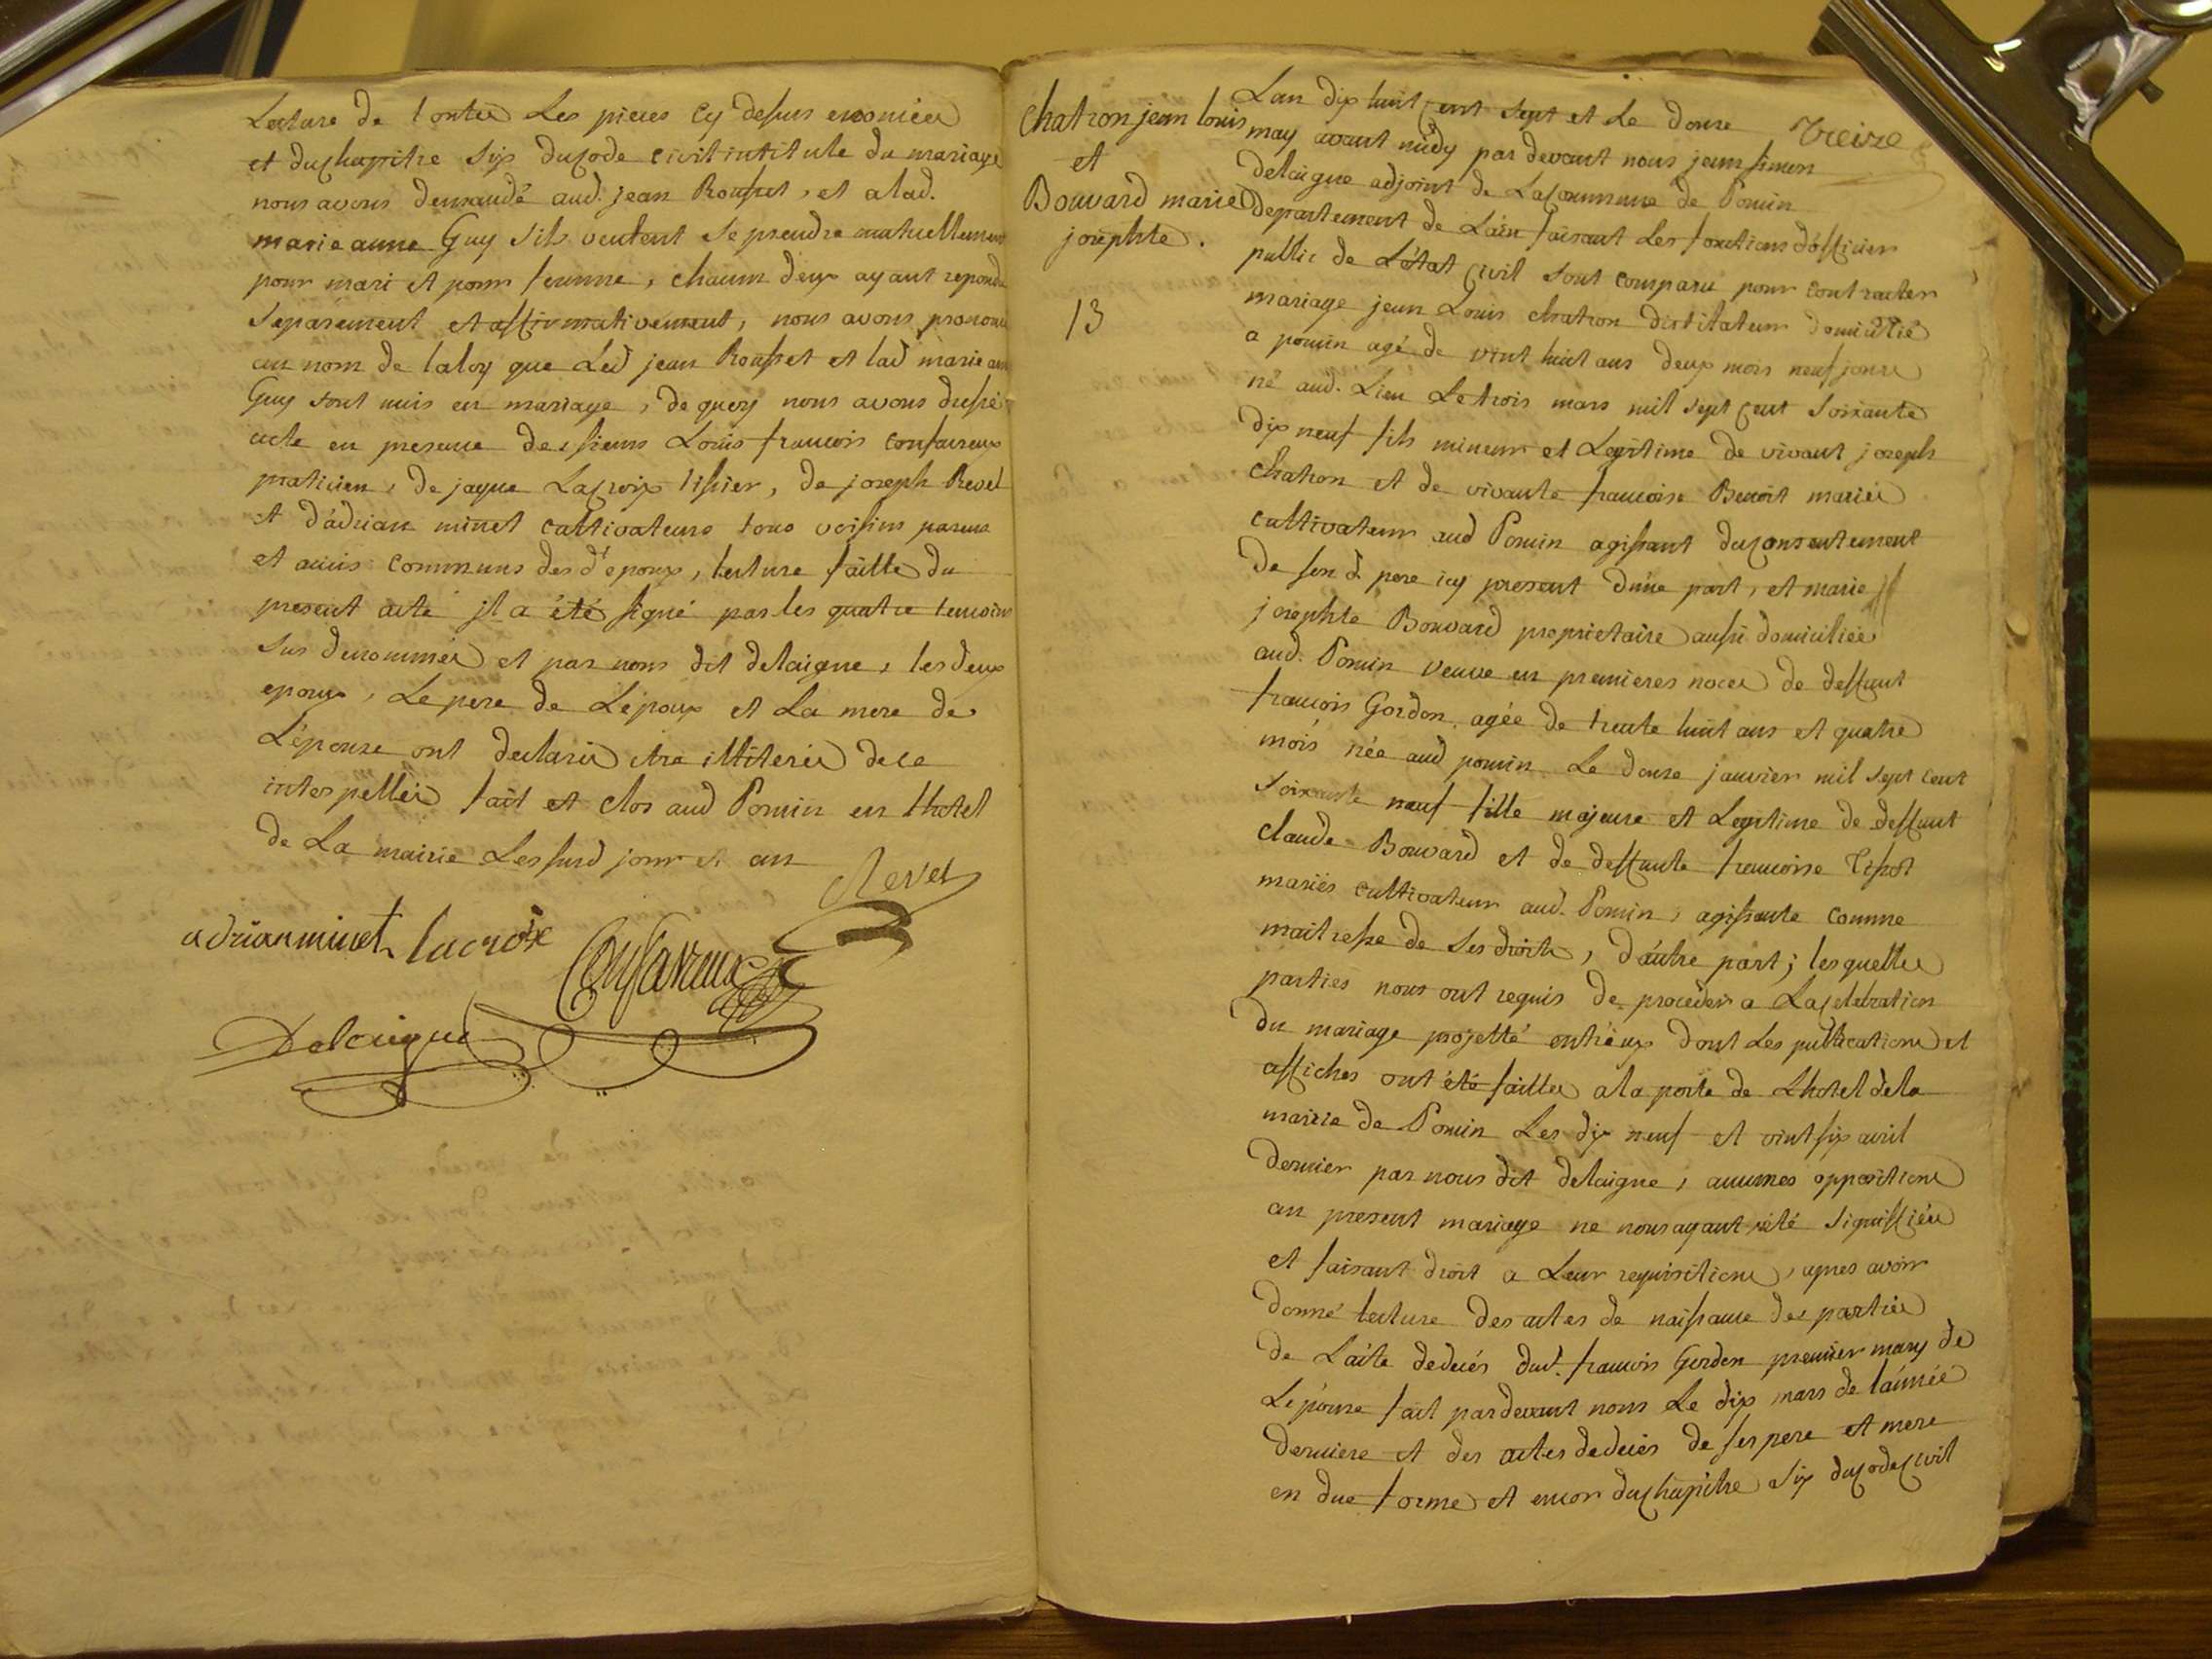 Lecture de toutes les pieces cy dessus enoncées
et duchapitre six ducode civil intitulé du mariage
nous avons demandé aud. jean Rousset, et alad.
marie anne Guy s'ils veulent se prendre mutuellement
pour mari et pour femme, chacun d'eux ayant repondu
Separement et affirmativement, nous avons prononcé
au nom de laloy que led jean Rousset et lad marie ann
Guy sont unis en mariage, de quoy nous avons dressé
acte en presence des sieurs Louis françois Confavreux
praticien, de jaque Lacroix tissier, de joseph Revel
et d'adrian minet cultivateurs tous voisins parens
et amis communs des d. epoux, lecture faitte du
present acte il a été signé par les quatre temoins
Sus denommés et par nous dit delaigue, les deux
epoux, Le pere de L'époux et La mere de
L'épouse ont declarés etre illiterés de ce
interpellés fait et clos aud Poncin en l'hotel
de La mairie Les susd jour et an
Revel
adrianminet lacroix Confavreux
Delaigue
Chatron jean louis
et
Bouvard marie
josephte.
13
Treize
Lan dix huit cent sept et Le douze
may avant midy par devant nous jean simon
delaigue adjoint de Lacommune de Poncin
departement de L'ain faisant Les fonctions d'officier
public de L'état Civil sont comparu pour contracter
mariage jean Louis chatron distilateur domicilié
a poncin agé de vint huit ans deux mois neuf jours
né aud. Lieu Le trois mars mil sept cent soixante
dix neuf fils mineur et Legitime de vivant joseph
Chatron et de vivante francoise Benoit mariés
cultivateurs aud Poncin agissant duconsentement
de son d. pere icy present d'une part, et marie
josephte Bouvard proprietaire aussi domiciliée
aud. Poncin veuve en premieres noces de deffunt
francois Gordon, agée de trente huit ans et quatre
mois née aud poncin Le douze janvier mil sept cent
Soixante neuf fille majeure et Legitime de deffunt
claude Bouvard et de deffunte francoise Tissot
mariés cultivateurs aud. Poncin, agissante comme
maitresse de ses droits, d'autre part; lesquelles
parties nous ont requis de proceder a Lacelebration
du mariage projetté entr'eux dont Les publications et
affiches ont été faittes ala porte de L'hotel dela
mairie de Poncin Les dix neuf et vint six avril
dernier par nous dit delaigue, aucunes oppositions
au present mariage ne nous ayant été signiffiées
et faisant droit a Leur requisitions, apres avoir
donné lecture des actes de naissance des parties
de L'acte dedecés dud. francois Gordon premier mary de
L'épouse fait pardevant nous Le dix mars de l'année
derniere et des actes dedecés de ses pere et mere
en due forme et encor duchapitre six ducodecivil